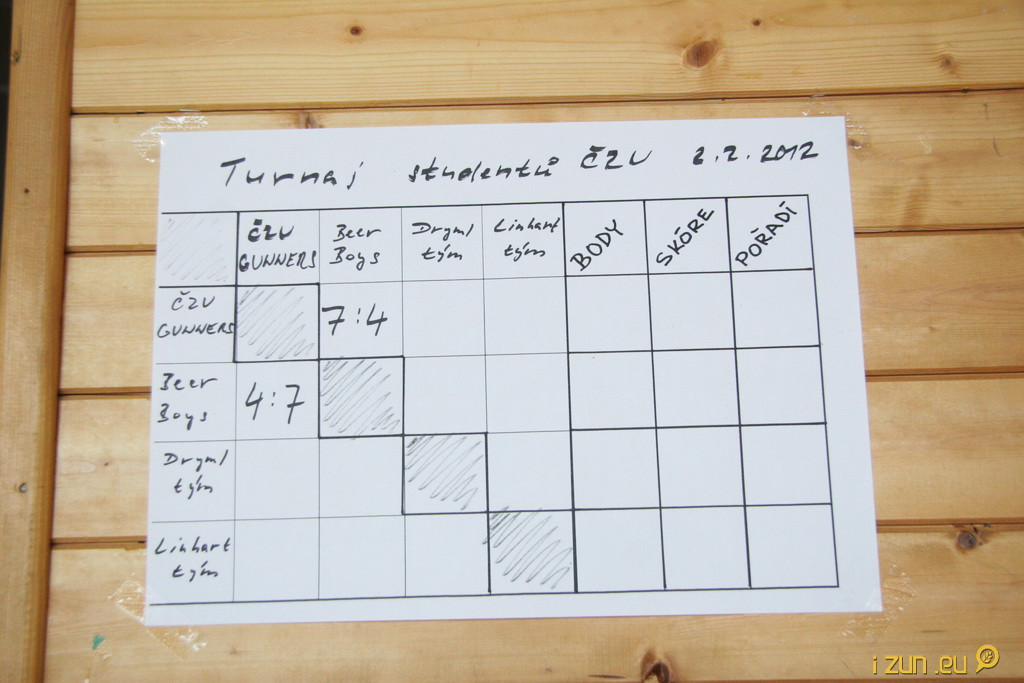 Turnaj studentů ČZU 2.2.2012
ČZU GUNNERS Beer Boys Dryml tým Linhart tým BODY SKÓRE POŘADÍ
ČZU GUNNERS 7:4
Beer Boys 4:7
Dryml tým
Linhart tým
i zun.eu